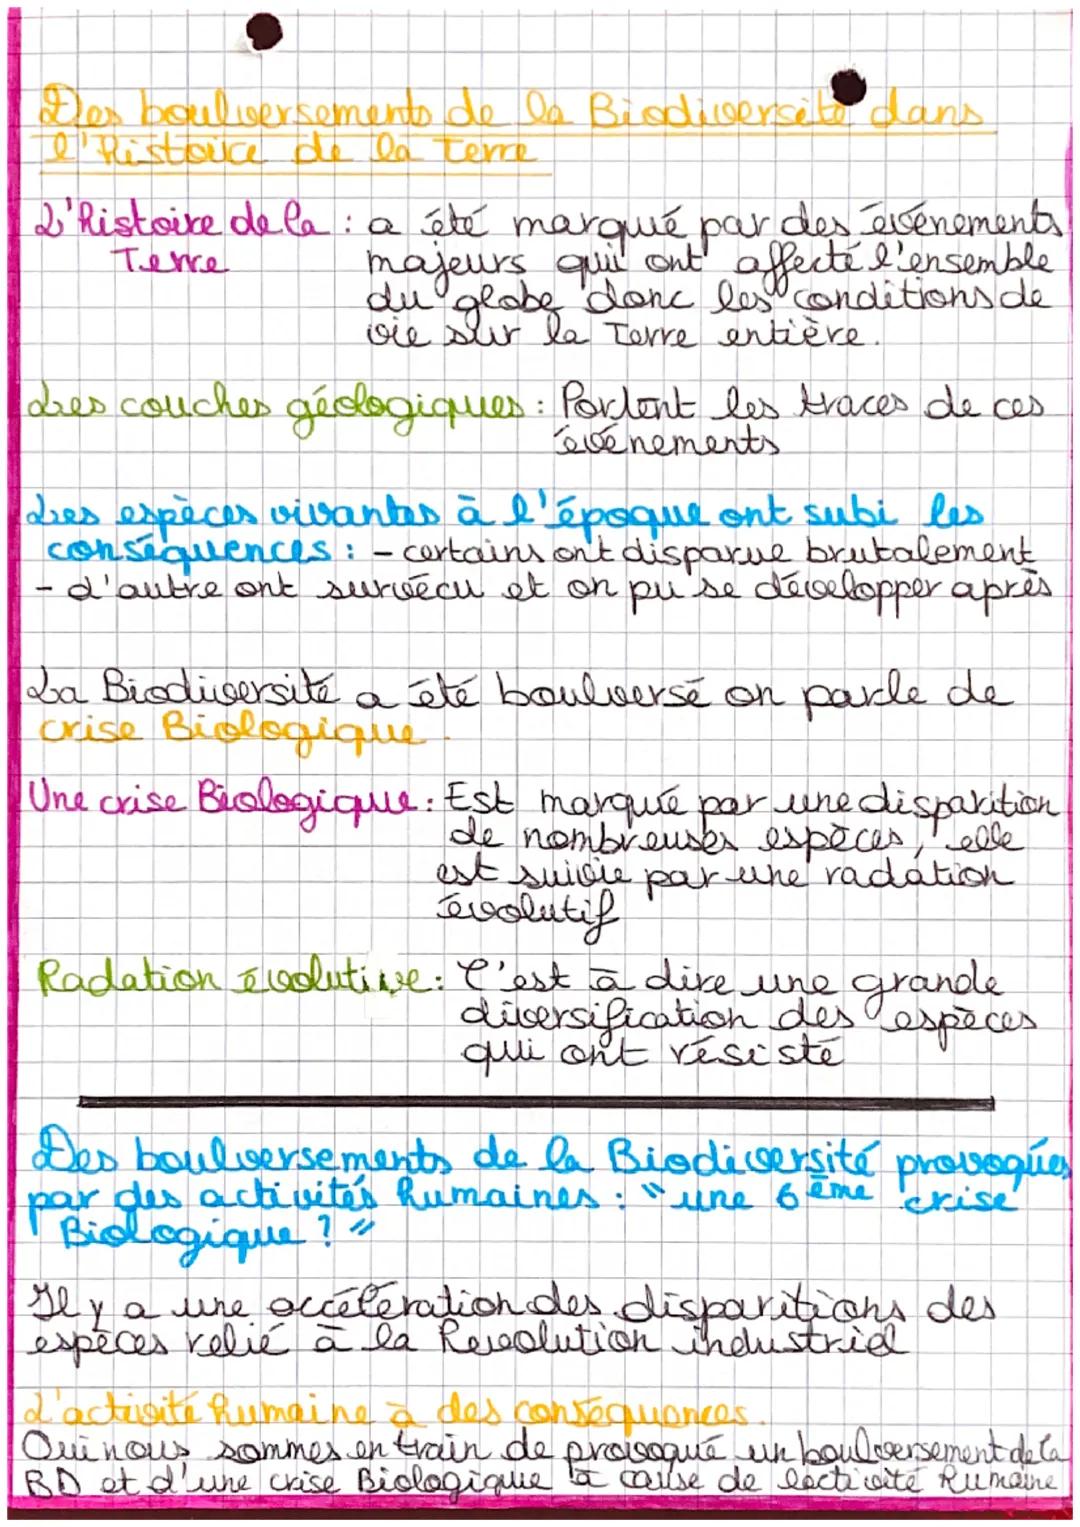 Des boulversements de la Biodiversité dans
l'histoire de la Terre
L'histoire de la : a été marqué par des événements
Terre majeurs qui ont affecté l'ensemble
du globe donc les conditions de
vie sur la Terre entière.
Les couches géologiques : Portent les traces de ces
événements
Les espèces vivantes à l'époque ont subi les
conséquences : - certains ont disparue brutalement
- d'autre ont survécu et on pu se développer après
La Biodiversité a été boulversé on parle de
crise Biologique.
Une crise Biologique : Est marquée par une disparition
de nombreuses espèces, elle
est suivie par une radation
évolutif
Radation évolutive : C'est à dire une grande
diversification des espèces
qui ont résisté
Des boulversements de la Biodiversité provoqués
par des activités humaines : "une 6ème crise
Biologique ? "
Il y a une accélération des disparitions des
espèces relié à la Revolution industriel
L'activité humaine à des conséquences.
Oui nous sommes en train de provoqué un boulversement de la
BD et d'une crise Biologique à cause de l'activité humaine